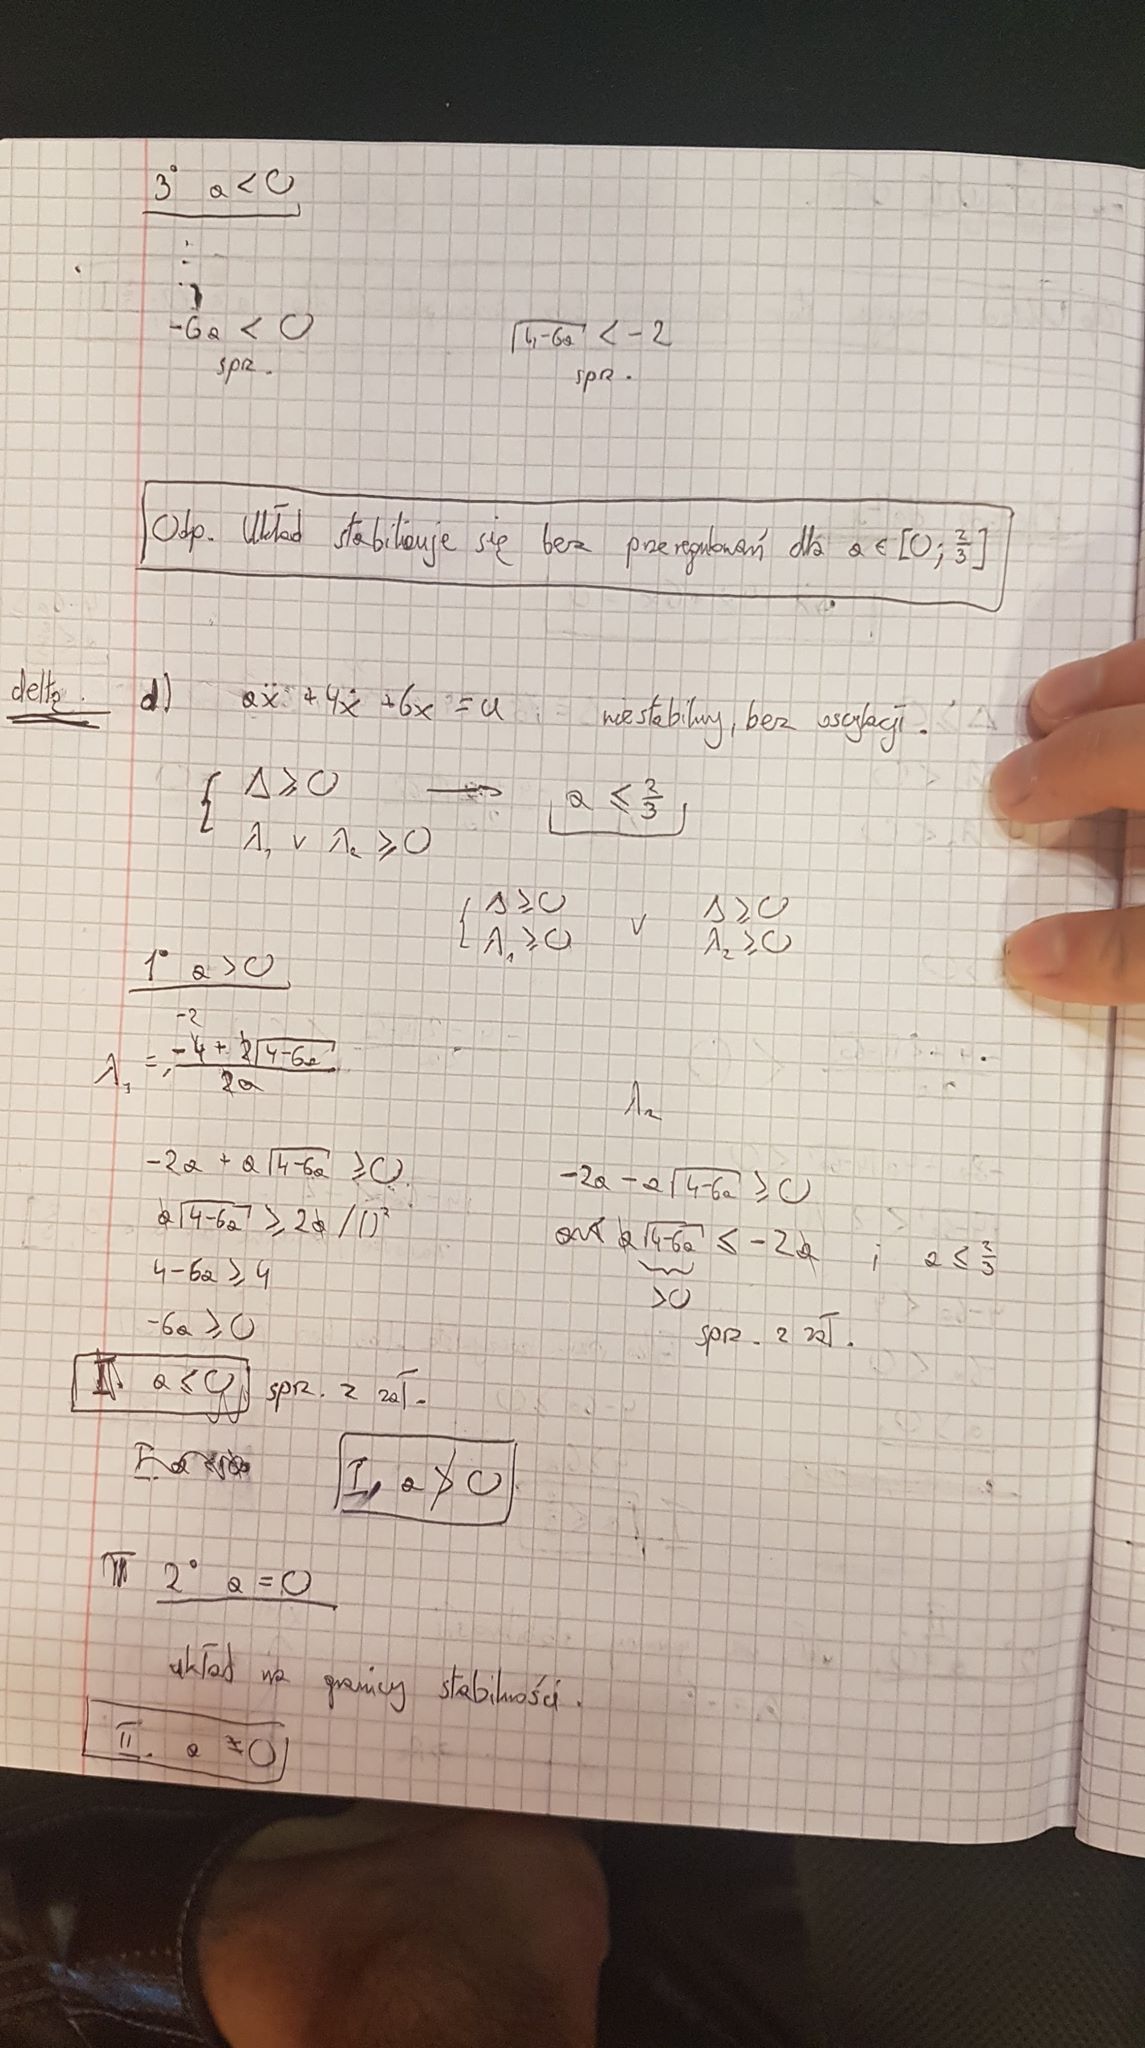 3° a < 0
-6a < 0 √4-6a < -2
spr. spr.
Odp. Układ stabilizuje się bez przeregulowań dla a ∈ [0; 2/3]
delta d) aẍ + 4ẋ + 6x = u niestabilny, bez oscylacji.
{ Δ ≥ 0 → a ≤ 2/3
λ₁ ∨ λ₂ ≥ 0
{ Δ ≥ 0 ∨ Δ ≥ 0
λ₁ ≥ 0 λ₂ ≥ 0
1° a > 0
-2
λ₁ = (-4 + 2√4-6a) / 2a
λ₂
-2a + a√4-6a ≥ 0 -2a - a√4-6a ≥ 0
a√4-6a ≥ 2a /()² a√4-6a ≤ -2a i a ≤ 2/3
4-6a ≥ 4 >0
-6a ≥ 0 spr. z zał.
a ≤ 0 spr. z zał.
I. a ≯ 0
2° a = 0
układ na granicy stabilności.
II. a ≠ 0